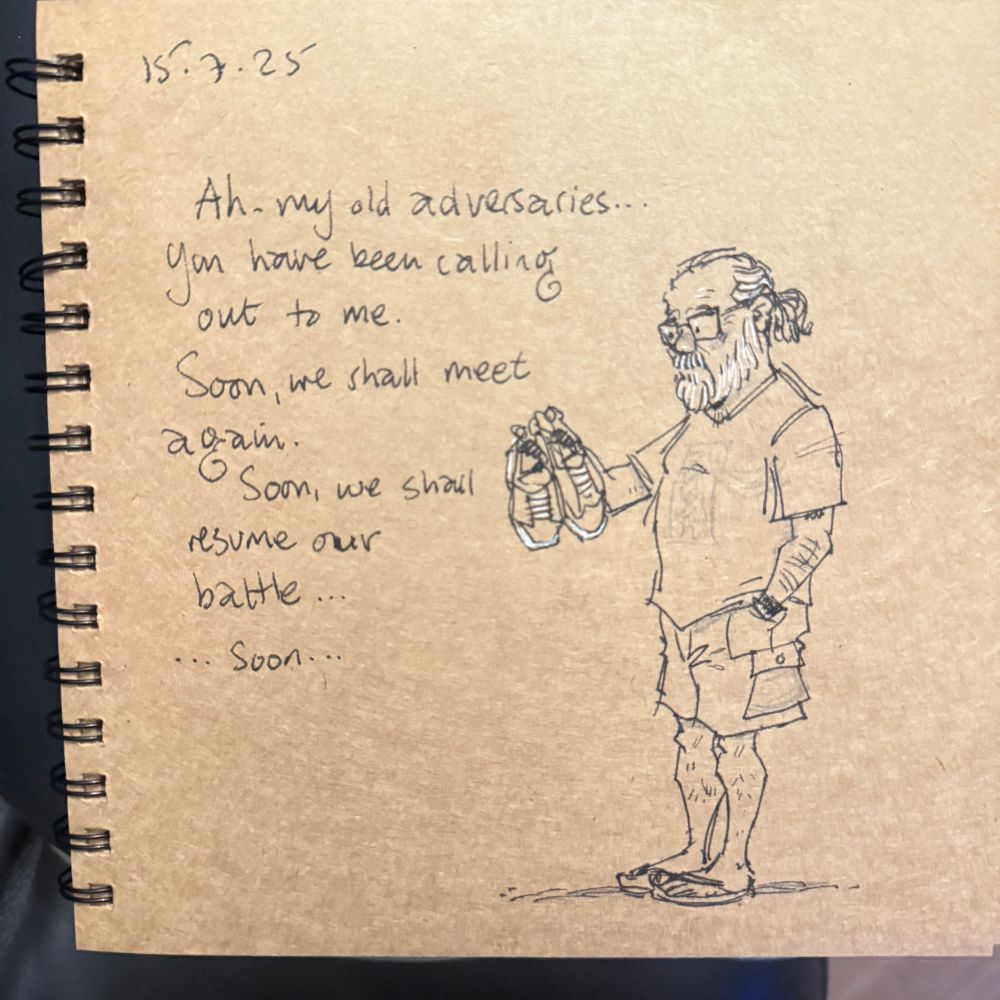 15.7.25
Ah - my old adversaries...
You have been calling
out to me.
Soon, we shall meet
again.
Soon, we shall
resume our
battle...
... Soon...